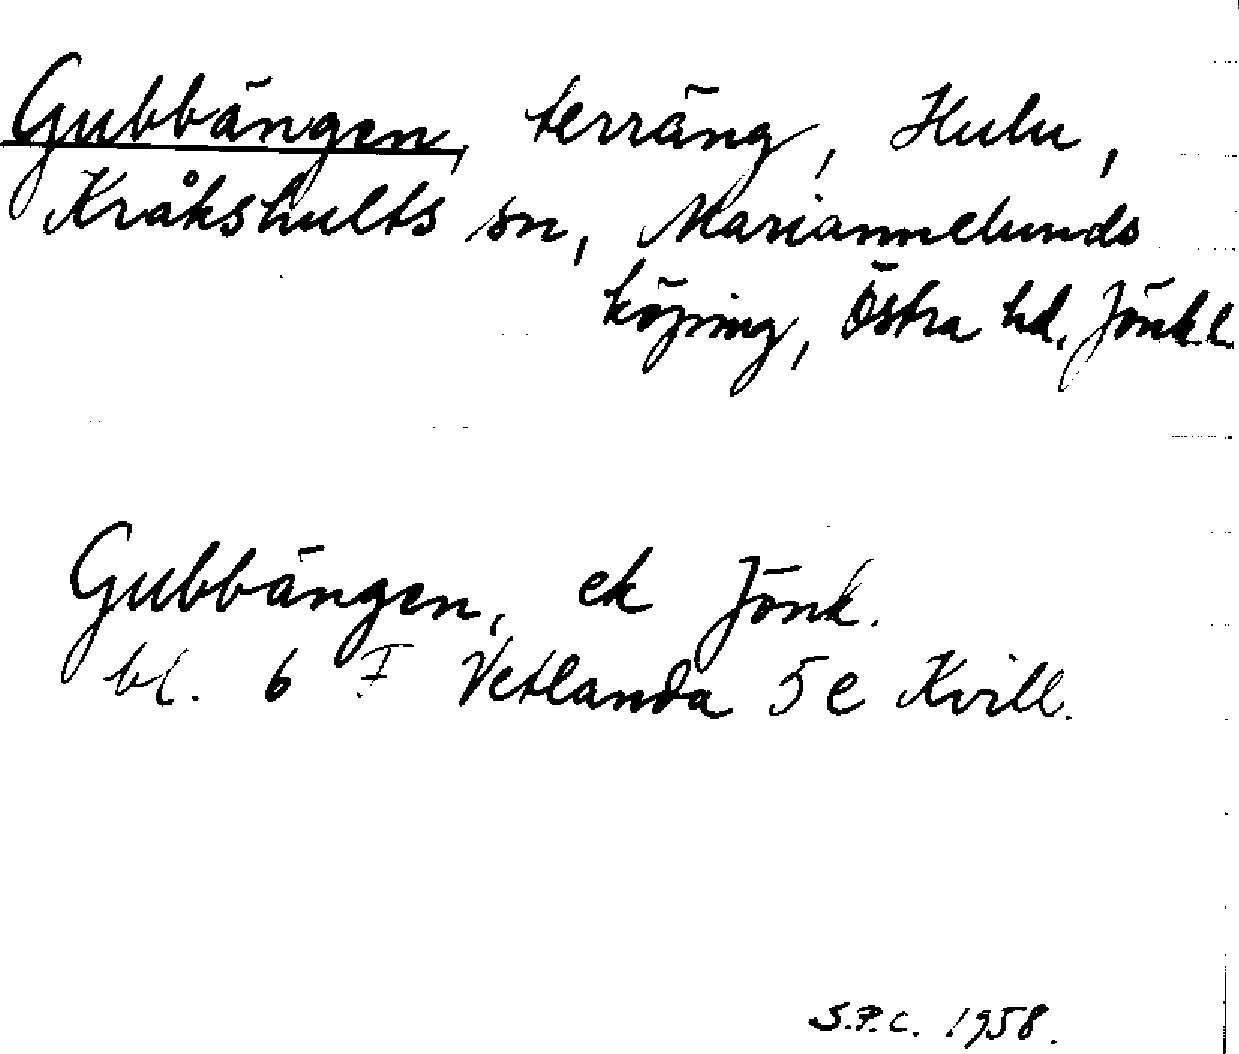 Gubbängen, terräng, Hulu,
Kråkshults sn, Mariannelunds
köping, Östra hd, Jönk.l.
Gubbängen, ek Jönk.
bl. 6 F Vetlanda 5e Kvill.
S.P.C. 1958.